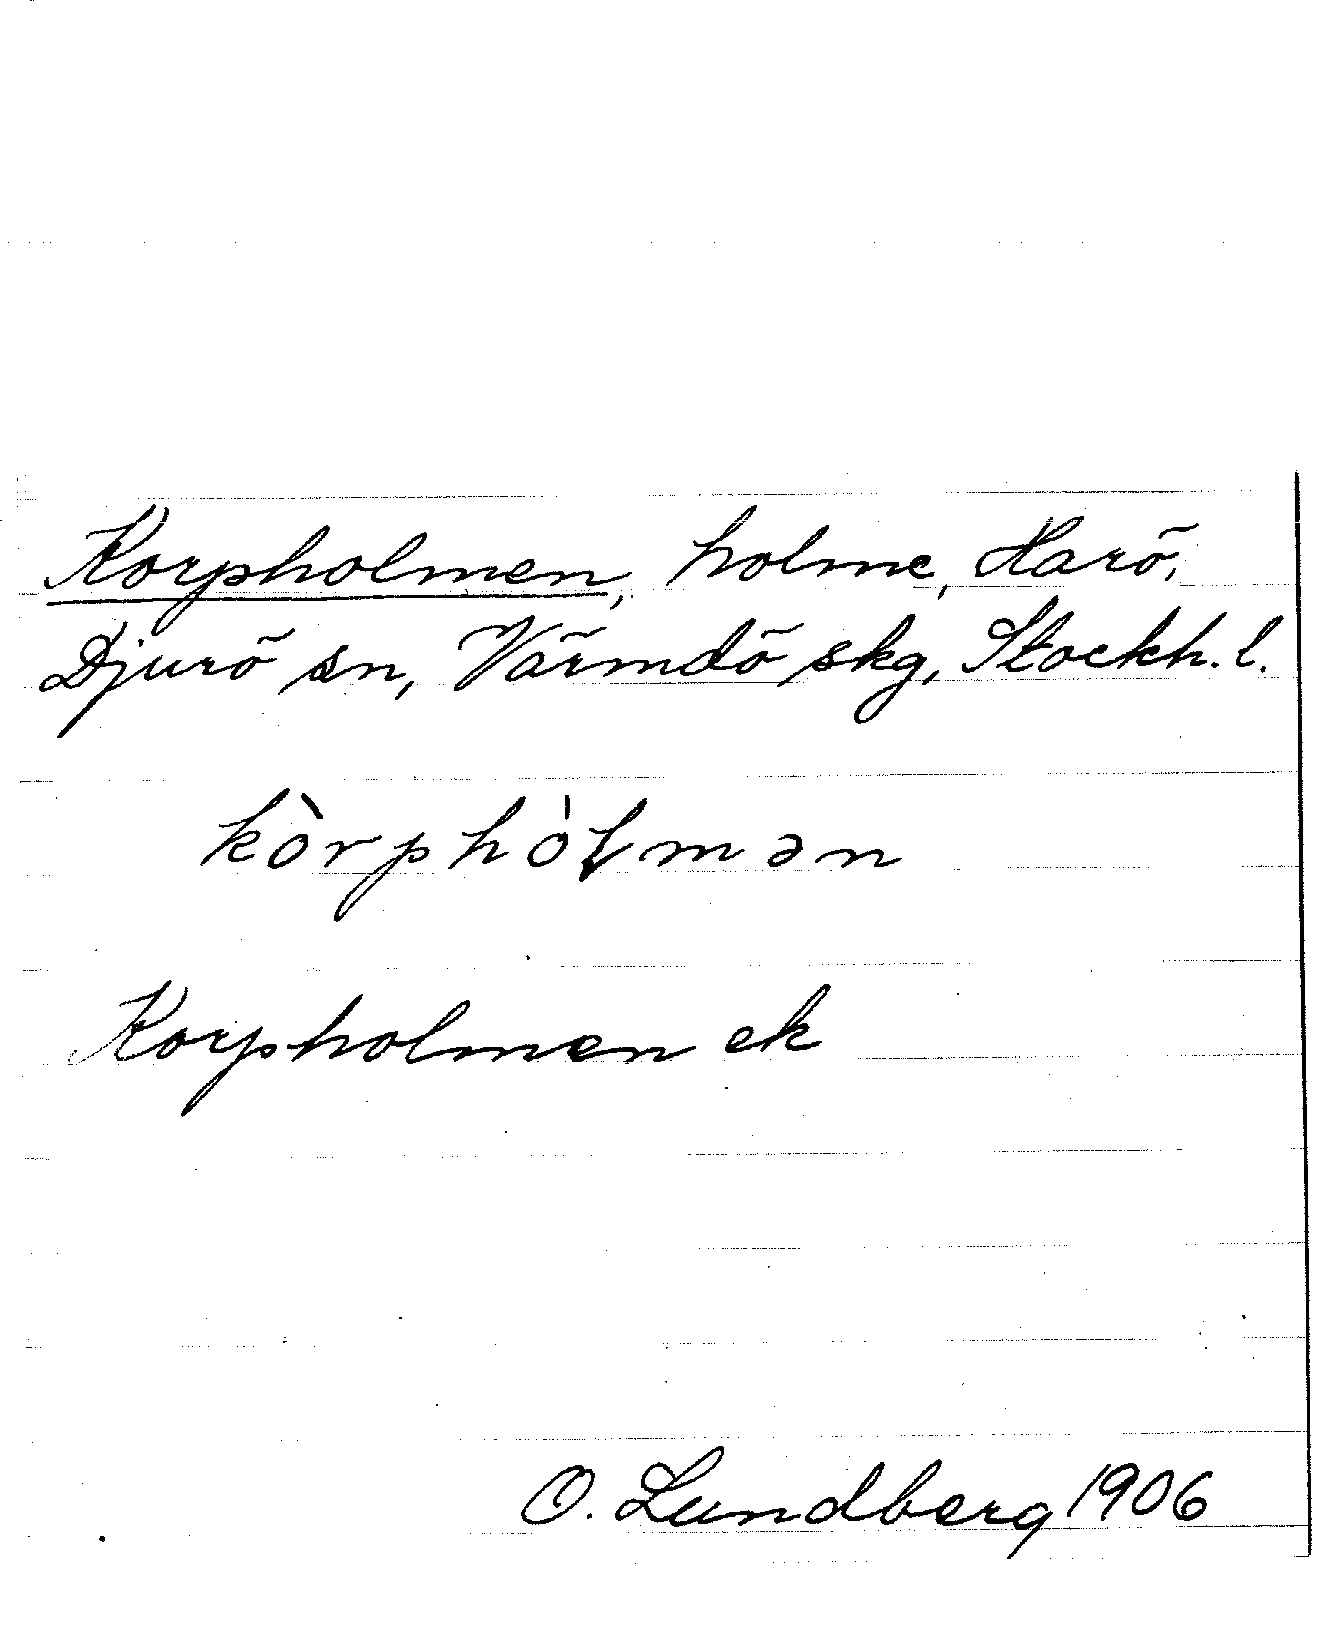 Korpholmen, holme, Harö,
Djurö sn, Värmdö skg, Stockh. l.
kòrphólmən
Korpholmen ek
O. Lundberg 1906